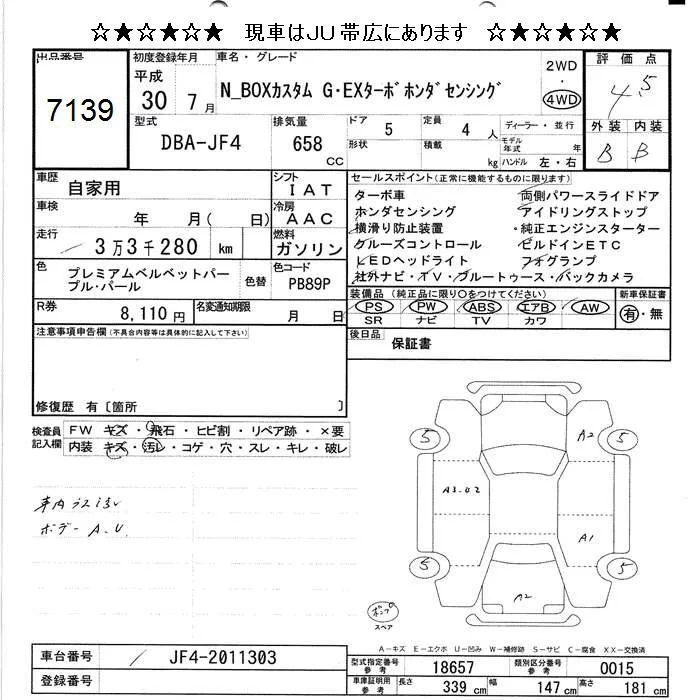 ☆★☆★☆★ 現車はJU帯広にあります ☆★☆★☆★
出品番号 初度登録年月 車名・グレード 評価点
7139 平成 30年 7月 N_BOXカスタム G・EXターボホンダセンシング 2WD・4WD 4.5
型式 排気量 ドア 5 定員 4人 ディーラー・並行 外装 内装
DBA-JF4 658 CC 形状 積載 kg モデル年式 年 ハンドル 左・右 B B
車歴 自家用 シフト IAT セールスポイント(正常に機能するものに限ります)
車検 年 月( 日) 冷房 AAC
走行 3万3千280 km 燃料 ガソリン
ターボ車 両側パワースライドドア
ホンダセンシング アイドリングストップ
横滑り防止装置 ・純正エンジンスターター
クルーズコントロール ビルドインETC
LEDヘッドライト フォグランプ
社外ナビ・TV・ブルートゥース・バックカメラ
色 プレミアムベルベットパープル・パール 色替 色コード PB89P
装備品(純正品に限り○をつけてください) 新車保証書
R券 8,110円 名変通知期限 月 日
PS PW ABS エアB AW 有・無
SR ナビ TV カワ
注意事項申告欄(不具合内容等は具体的に記入して下さい)
後日品 保証書
修復歴 有〔箇所 〕
検査員記入欄 FW キズ・飛石・ヒビ割・リペア跡・×要
内装 キズ・汚レ・コゲ・穴・スレ・キレ・破レ
車内
ボデー A.U
5 A2 5
A3.U2
A1
5 5
A2
スペア
A-キズ E-エクボ U-凹み W-補修跡 S-サビ C-腐食 XX-交換済
車台番号 JF4-2011303
型式指定番号参考 18657 類別区分番号参考 0015
登録番号
車庫証明用参考 長さ 339cm 幅 147cm 高さ 181cm